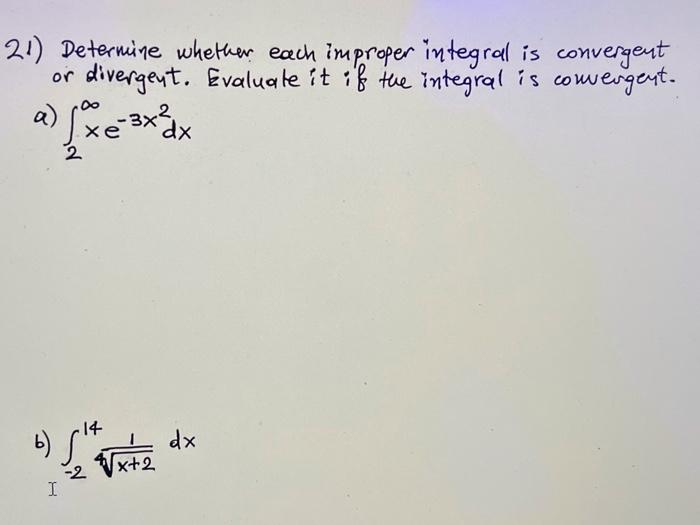 21) Determine whether each improper integral is convergent
or divergent. Evaluate it if the integral is convergent.
a) ∫₂^∞ xe^(-3x²) dx
b) ∫₋₂^14 1/∜(x+2) dx